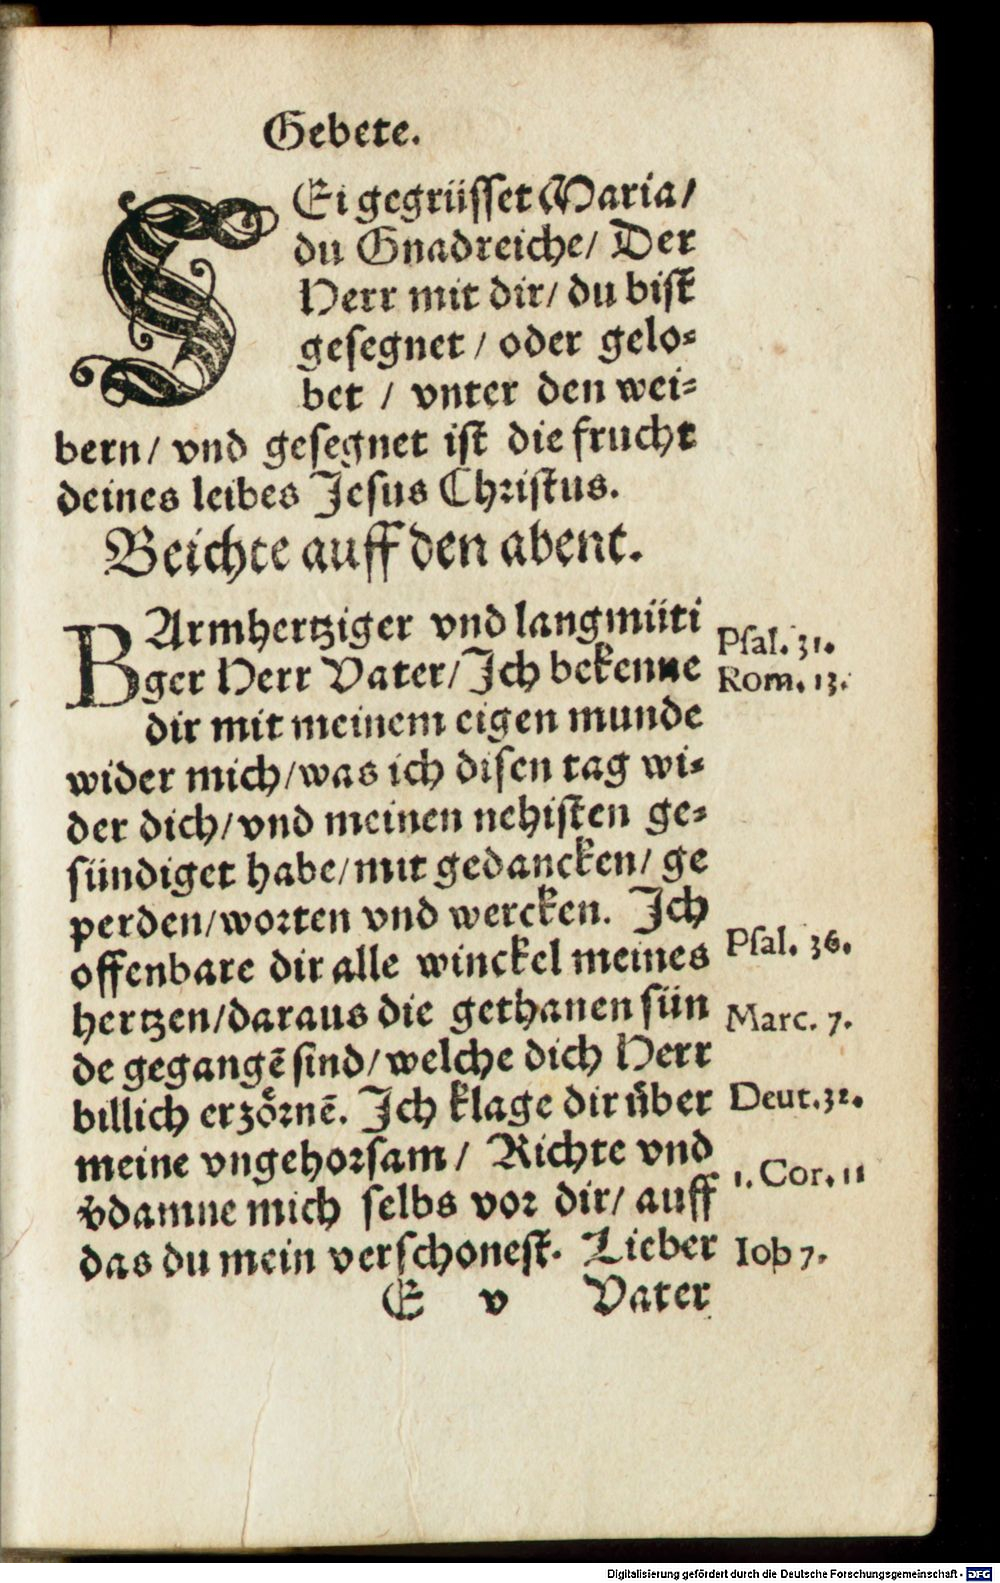 Gebete.
SEi gegrüsset Maria/
du Gnadreiche/ Der
Herr mit dir/ du bist
gesegnet / oder gelo-
bet / vnter den wei-
bern/ vnd gesegnet ist die frucht
deines leibes Jesus Christus.
Beichte auff den abent.
BArmhertziger vnd langmüti
ger Herr Vater/ Ich bekenne
dir mit meinem eigen munde
wider mich/ was ich disen tag wi-
der dich/ vnd meinen nehisten ge-
sündiget habe/ mit gedancken/ ge
perden/ worten vnd wercken. Ich
offenbare dir alle winckel meines
hertzen/ daraus die gethanen sün
de gegangē sind/ welche dich Herr
billich erzoͤrnē. Ich klage dir uͤber
meine vngehorsam/ Richte vnd
v̄damne mich selbs vor dir/ auff
das du mein verschonest. Lieber
E v Vater
Psal. 31.
Rom. 13.
Psal. 36.
Marc. 7.
Deut. 32.
1. Cor. 11
Iob 7.
Digitalisierung gefördert durch die Deutsche Forschungsgemeinschaft - DFG